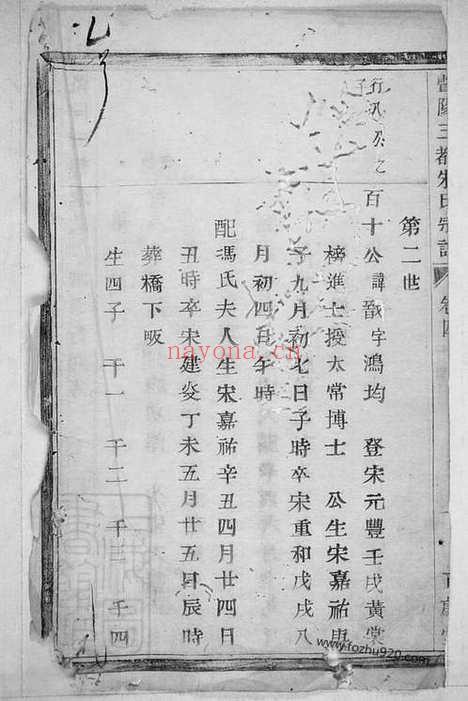 暨陽三都朱氏宗譜
卷四
第二世
行八公之子
百十公諱 字鴻均 登宋元豐壬戌黃裳
榜進士授太常博士 公生宋嘉祐庚
子九月初七日子時卒宋重和戊戌八
月初四日午時
配馮氏夫人生宋嘉祐辛丑四月廿四日
丑時卒宋建炎丁未五月廿五日辰時
葬橋下畈
生四子 千一 千二 千三 千四
nayona.cn
www.fozhu920.com